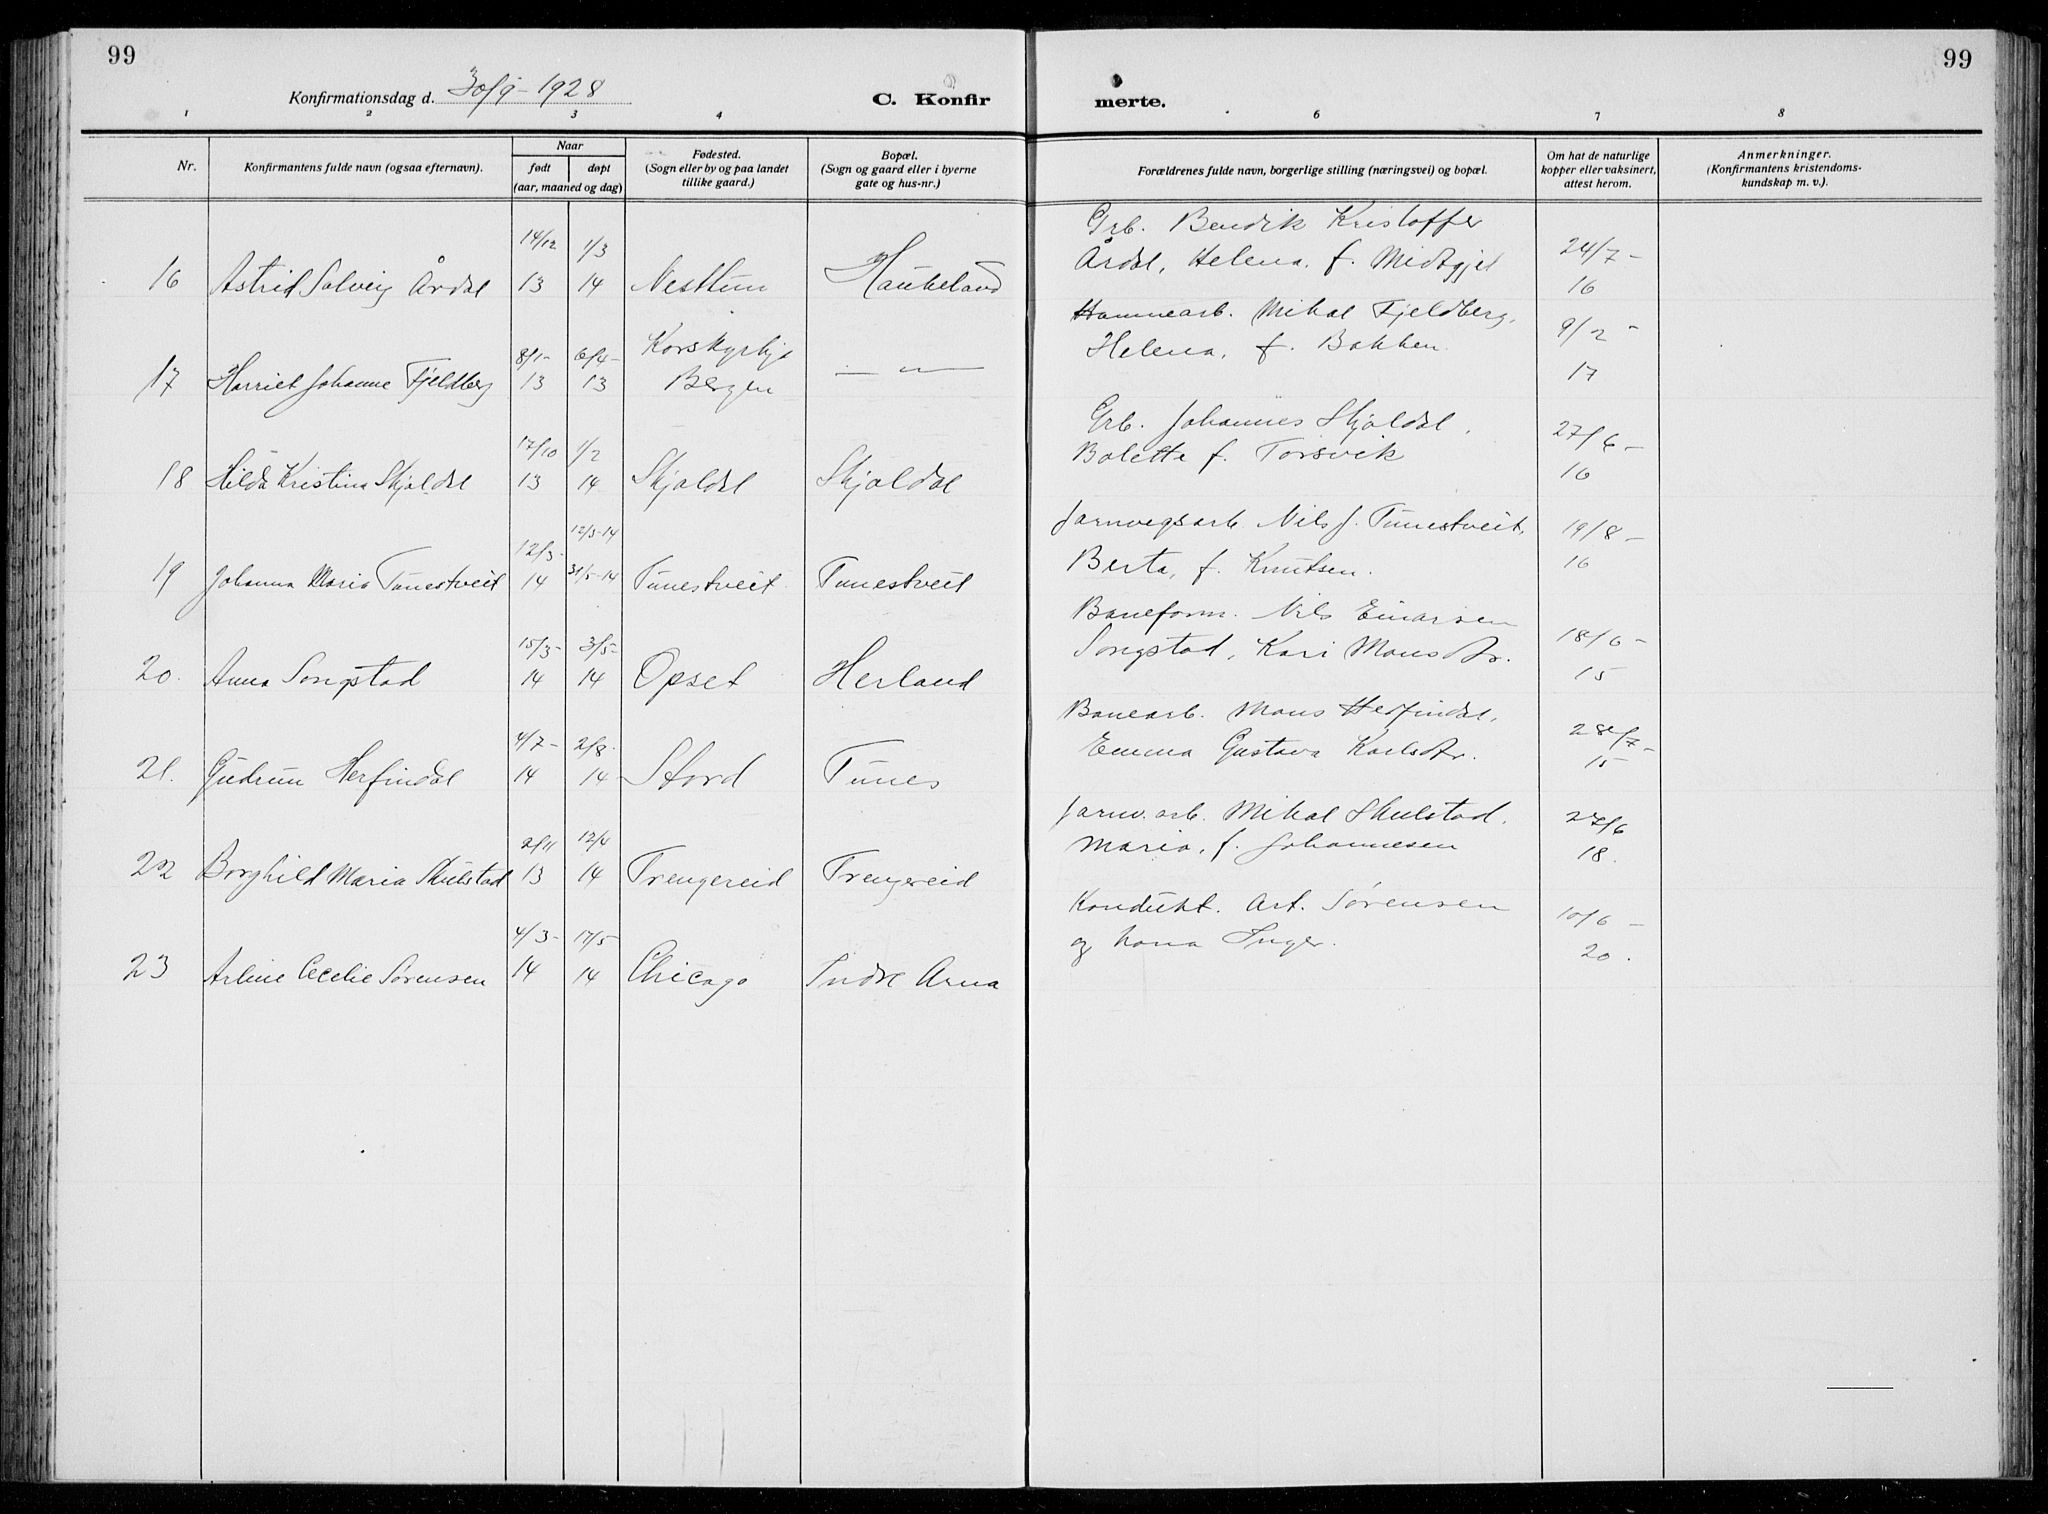 99
99
Konfirmationsdag d. 30/9-1928
C. Konfir
merte.
1 2 3 4 6 7 8
Nr.
Konfirmantens fulde navn (ogsaa efternavn).
Naar
født
døpt
(aar, maaned og dag)
Fødested.
(Sogn eller by og paa landet
tillike gaard.)
Bopæl.
(Sogn og gaard eller i byerne
gate og hus-nr.)
Forældrenes fulde navn, borgerlige stilling (næringsvei) og bopæl.
Om hat de naturlige
kopper eller vaksinert,
attest herom.
Anmerkninger.
(Konfirmantens kristendoms-
kundskap m. v.).
14/12 1/3 Grb. Bendik Kristoffer
Årdal, Helena, f. Midtgjel 24/7-
16 Astrid Solveig Årdal 13 14 Nesttun Haukeland 16
8/1- 6/4- Korskyrkje Hammearb. Mikal Fjeldberg, 9/2-
Helena, f. Bakken.
17 Harriet Johanne Fjeldberg 13 13 Bergen — " — 17
17/10 1/2 Grb. Johannes Skjoldal, 27/6-
Bolette f. Torsvik
18 Hilda Kristina Skjoldal 13 14 Skjoldal Skjoldal 16
12/3- 12/3-14 Jarnvegsarb. Nils J. Tunestveit, 19/8-
19 Johanna Maria Tunestveit 14 31/5-14 Tunestveit Tunestveit Berta, f. Knutsen. 16
15/3- 3/5- Baneform. Nils Einarsen 18/6-
Songstad, Kari Monsdr.
20. Anna Songstad 14 14 Opset Herland 15
4/7- 2/8- Banearb. Mons Herfindal, 28/7-
Emma Gustava Karlsdr.
21. Gudrun Herfindal 14 14 Stord Tunes 15
2/11 12/4 Jarnv.arb. Mikal Skulstad, 27/6
Maria, f. Johannesen 18.
22 Borghild Maria Skulstad 13 14 Trengereid Trengereid
4/3- 17/5- Kondukt. Art. Sørensen 10/6-
og kona Inger. 20.
23 Arline Cecelie Sørensen 14 14 Chicago Indre Arna